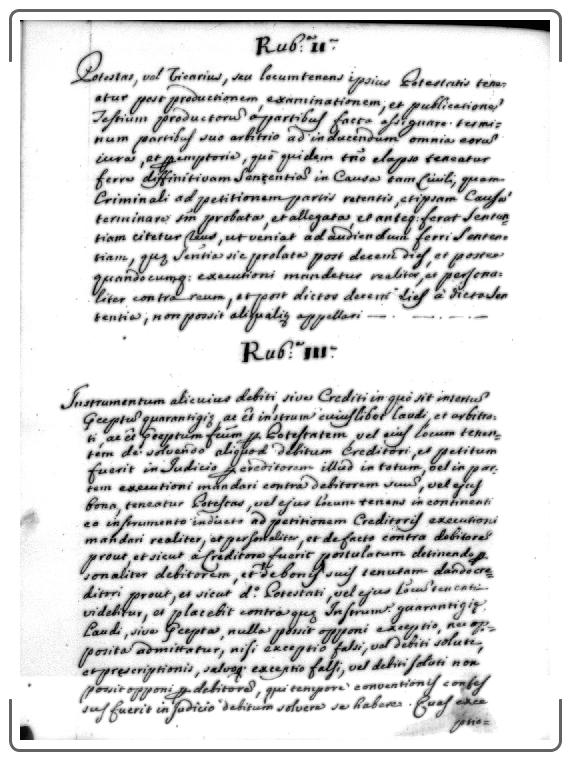 Rub.ª II.ª
Potestas, vel Vicarius, seu locumtenens ipsius Potestatis tene-
atur post productionem, examinationem, et publicatione
Testium productorũ à partibus facta assignare termi-
num partibus suo arbitrio ad inducendum omnia eorũ
iura, et peremptoria, quò quidem tnõ elapso teneatur
ferre diffinitivam Sententiã in Causa tam Civili, quam
Criminali ad petitionem partis retentis, et ipsam Causã
terminare sm̃ probata, et allegata, et anteq. ferat Senten-
tiam citetur reus, ut veniat ad audiendum ferri Senten-
tiam, quę Sentia sic prolata post decem dies, et postea
quandocumq: executioni mandetur realiter, et persona-
liter contra reum, et post dictos decem dies à dicta Sen
tentia, non possit aliqualiter appellari
Rub.ª III.ª
Instrumentum alicuius debiti, sive Crediti in quò sit insertũ
Pceptũ quarantigię, ac ẽt instrum cuiuslibet Laudi, et arbitra-
ti, ac ẽt Pceptum fcum p. Potestatem vel eius locum tenen-
tem de solvendo aliquod debitum Creditori, et petitum
fuerit in Iudicio p creditorem illud in totum, vel in par-
tem executioni mandari contra debitorem suũ, vel ejus
bona, teneatur Potestas, vel ejus Locum tenens in continenti
eo instrumento inducto ad petitionem Creditoris executioni
mandari realiter, et personaliter, et de facto contra debitorẽ
prout et sicut à Creditore fuerit postulatum detinendo p.
sonaliter debitorem, et de bonis suis tenutam dando cre-
ditori prout, et sicut d.º Potestati, vel ejus Locũ tenenti
videbitur, et placebit contra quę Instrum.ª quarantigię
Laudi, sive Pcepta, nulla possit opponi exceptio, nec op-
posita admittatur, nisi exceptio falsi, vel debiti soluti,
et prescriptionis, salveq exceptio falsi, vel debiti soluti non
possit opponi p debitorẽ, qui tempore conventionis confes
sus fuerit in Judicio debitum solvere se habere. Quas exce
ptio-